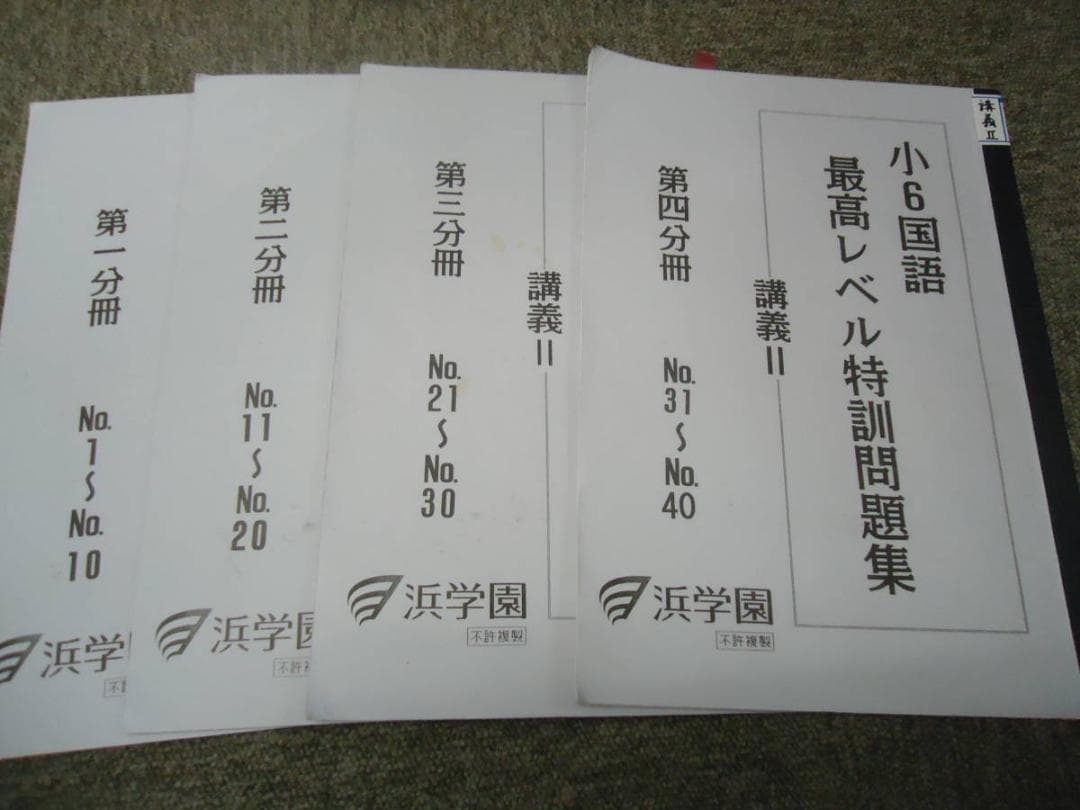 講義II
小6国語
最高レベル特訓問題集
講義II
第四分冊 No.31~No.40
浜学園
不許複製
講義II
第三分冊 No.21~No.30
浜学園
不許複製
第二分冊 No.11~No.20
浜学園
不許
第一分冊 No.1~No.10
浜学
不許